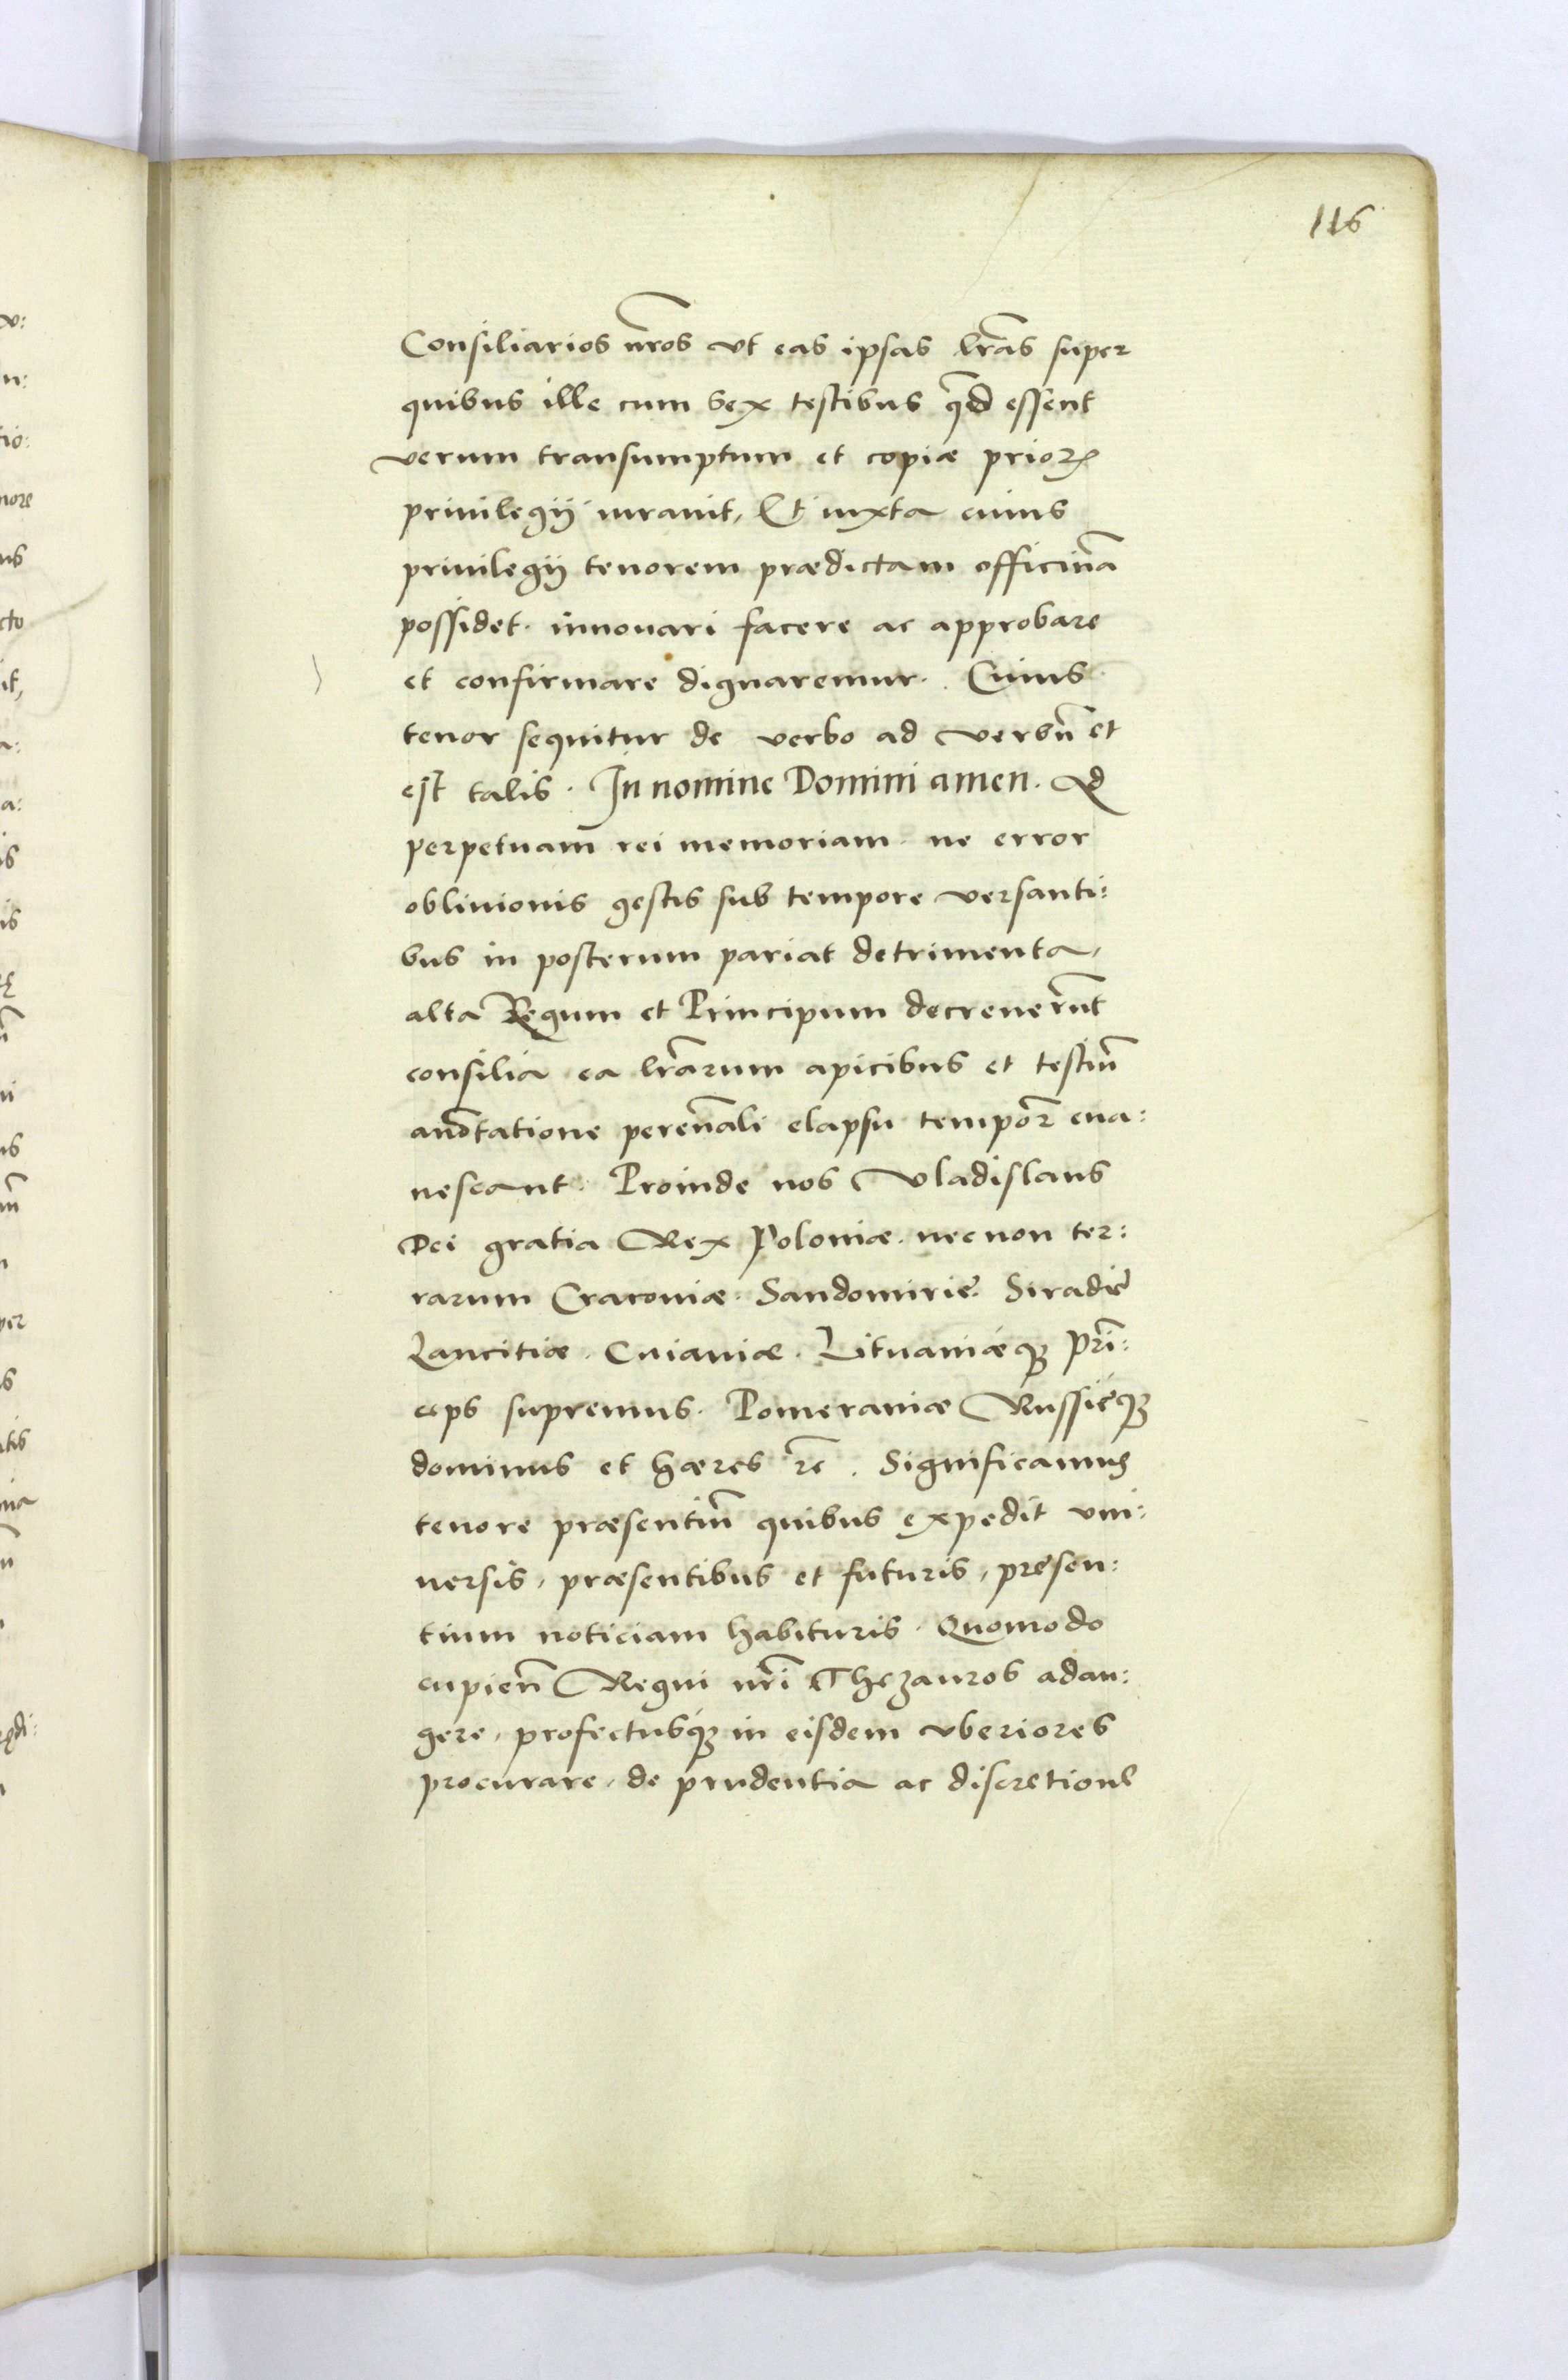 116
Consiliarios nr̃os vt eas ipsas lr̃as super
quibus ille cum sex testibus q̃d essent
verum transumptum et copiæ prioꝝ
priuilegij iurauit, Et iuxta cuius
priuilegij tenorem prædictam officinã
possidet. innouari facere ac approbare
et confirmare dignaremur. Cuius
tenor sequitur de verbo ad verbũ et
est talis. In nomine Domini amen. Ad
perpetuam rei memoriam. ne error
obliuionis gestis sub tempore versanti:
bus in posterum pariat detrimenta,
alta Regum et Principum decreuerũt
consilia ea lr̃arum apicibus et testiũ
anõtatione perẽnali elapsu tempoꝝ eua:
nescant. Proinde nos Vladislaus
Dei gratia Rex Poloniæ. necnon ter:
rarum Cracouiæ. Sandomirię. Siradię
Lancitiæ. Cuiauiæ. Lituaniæqꝫ Prĩ:
ceps supremus. Pomeraniæ Russięqꝫ
dominus et hæres ⁊c̃. Significamus
tenore præsentiũ quibus expedit vni:
uersis, præsentibus et futuris, presen:
tium noticiam habituris. Quomodo
cupien̄ Regni nr̃i Thezauros adau:
gere, profectusqꝫ in eisdem vberiores
procurare, de prudentia ac discretione